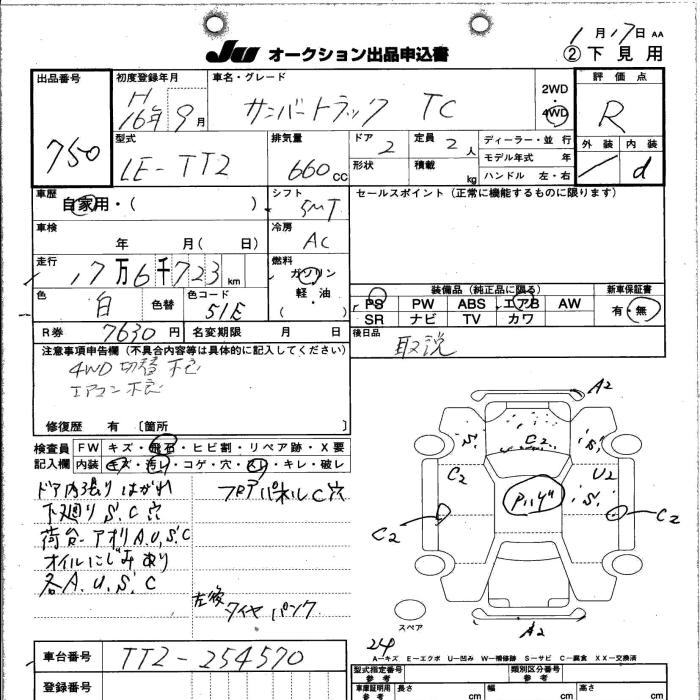 1月17日 AA
JU オークション出品申込書 ②下見用
出品番号 初度登録年月 車名・グレード 評価点
750 H16年9月 サンバートラック TC 2WD・4WD R
型式 排気量 ドア 定員 ディーラー・並行 外装 内装
LE-TT2 660cc 2 2人 モデル年式 年 d
形状 積載 kg ハンドル 左・右
車歴 シフト セールスポイント（正常に機能するものに限ります）
自家用・（ ） 5MT
車検 冷房
年 月（ 日） AC
走行 燃料
17万6千723km ガソリン
軽・油
（ ）
色 白 色替 色コード 51E
装備品（純正品に限る） 新車保証書
PS PW ABS エアB AW 有・無
SR ナビ TV カワ
R券 7630円 名変期限 月 日 後日品
取説
注意事項申告欄（不具合内容等は具体的に記入してください）
4WD切替不良
エアコン不良
修復歴 有〔箇所 〕
検査員 FW キズ・飛石・ヒビ割・リペア跡・X要
記入欄 内装 キズ・汚レ・コゲ・穴・スレ・キレ・破レ
ドア内張りはがれ フロアパネルC穴
下廻りS.C穴
荷台-アオリA.U.S.C
オイルにじみあり
各A.U.S.C
左後タイヤパンク
A2
S C2 S
C2 U2
S
C2 C2
A2
スペア
24
A-キズ E-エクボ U-凹み W-補修跡 S-サビ C-腐食 XX-交換済
車台番号 TT2-254570
型式指定番号 類別区分番号
参考 参考
登録番号
車庫証明用 長さ 幅 高さ
参考 cm cm cm